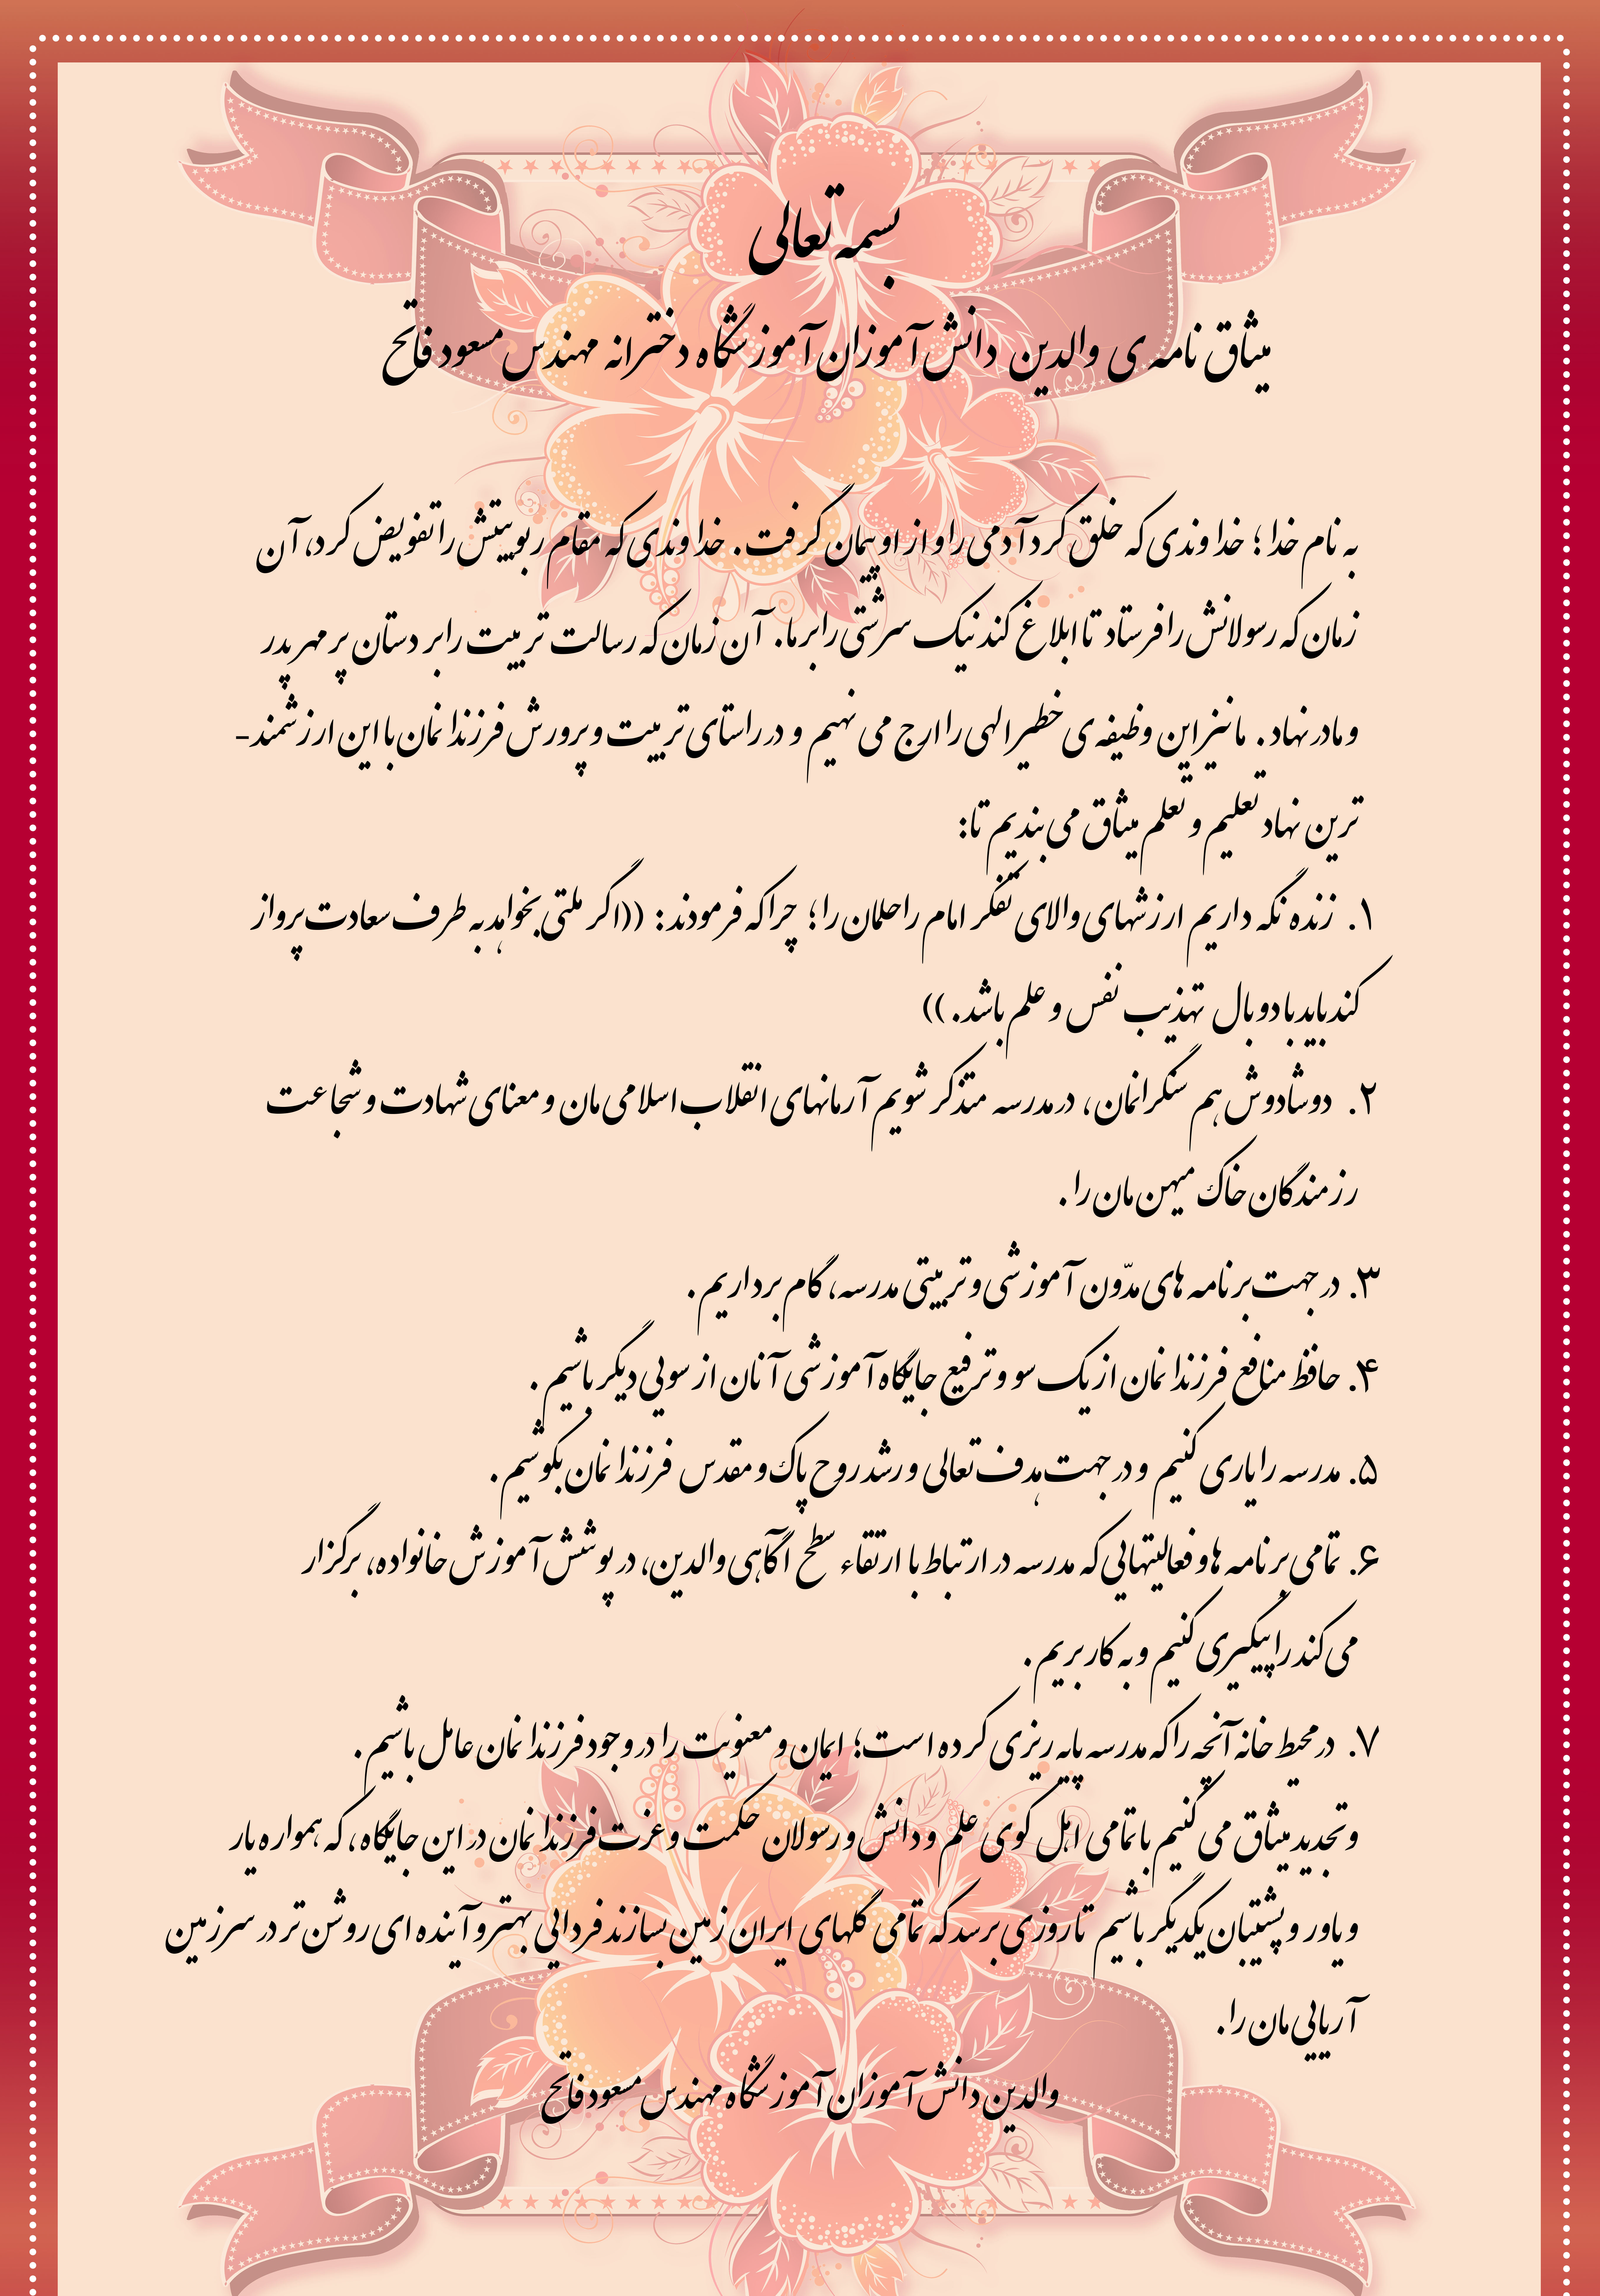 بسمه تعالی
میثاق نامه ی والدین دانش آموزان آموزشگاه دخترانه مهندس مسعود فاتح
به نام خدا ؛ خداوندی که خلق کرد آدمی را و از او پیمان گرفت. خداوندی که مقام ربوبیتش را تفویض کرد، آن
زمان که رسولانش را فرستاد تا ابلاغ کند نیک سرشتی را بر ما. آن زمان که رسالت تربیت را بر دستان پر مهر پدر
و مادر نهاد. ما نیز این وظیفه ی خطیر الهی را ارج می نهیم و در راستای تربیت و پرورش فرزندانمان با این ارزشمند-
ترین نهاد تعلیم و تعلم میثاق می بندیم تا:
۱. زنده نگه داریم ارزشهای والای تفکر امام راحلمان را؛ چرا که فرمودند: ((اگر ملتی بخواهد به طرف سعادت پرواز
کند باید با دو بال تهذیب نفس و علم باشد.))
۲. دوشادوش هم سنگرانمان، در مدرسه متذکر شویم آرمانهای انقلاب اسلامی مان و معنای شهادت و شجاعت
رزمندگان خاک میهن مان را.
۳. در جهت برنامه های مدّون آموزشی و تربیتی مدرسه، گام برداریم.
۴. حافظ منافع فرزندانمان از یک سو و ترفیع جایگاه آموزشی آنان از سویی دیگر باشیم.
۵. مدرسه را یاری کنیم و در جهت هدف تعالی و رشد روح پاک و مقدس فرزندانمان بکوشیم.
۶. تمامی برنامه ها و فعالیتهایی که مدرسه در ارتباط با ارتقاء سطح آگاهی والدین، در پوشش آموزش خانواده، برگزار
می کند را پیگیری کنیم و به کار بریم.
۷. در محیط خانه آنچه را که مدرسه پایه ریزی کرده است؛ ایمان و معنویت را در وجود فرزندانمان عامل باشیم.
و تجدید میثاق می کنیم با تمامی اهل کوی علم و دانش و رسولان حکمت و عزت فرزندانمان در این جایگاه، که همواره یار
و یاور و پشتیبان یکدیگر باشیم تا روزی برسد که تمامی گلهای ایران زمین بسازند فردایی بهتر و آینده ای روشن تر در سرزمین
آریایی مان را.
والدین دانش آموزان آموزشگاه مهندس مسعود فاتح